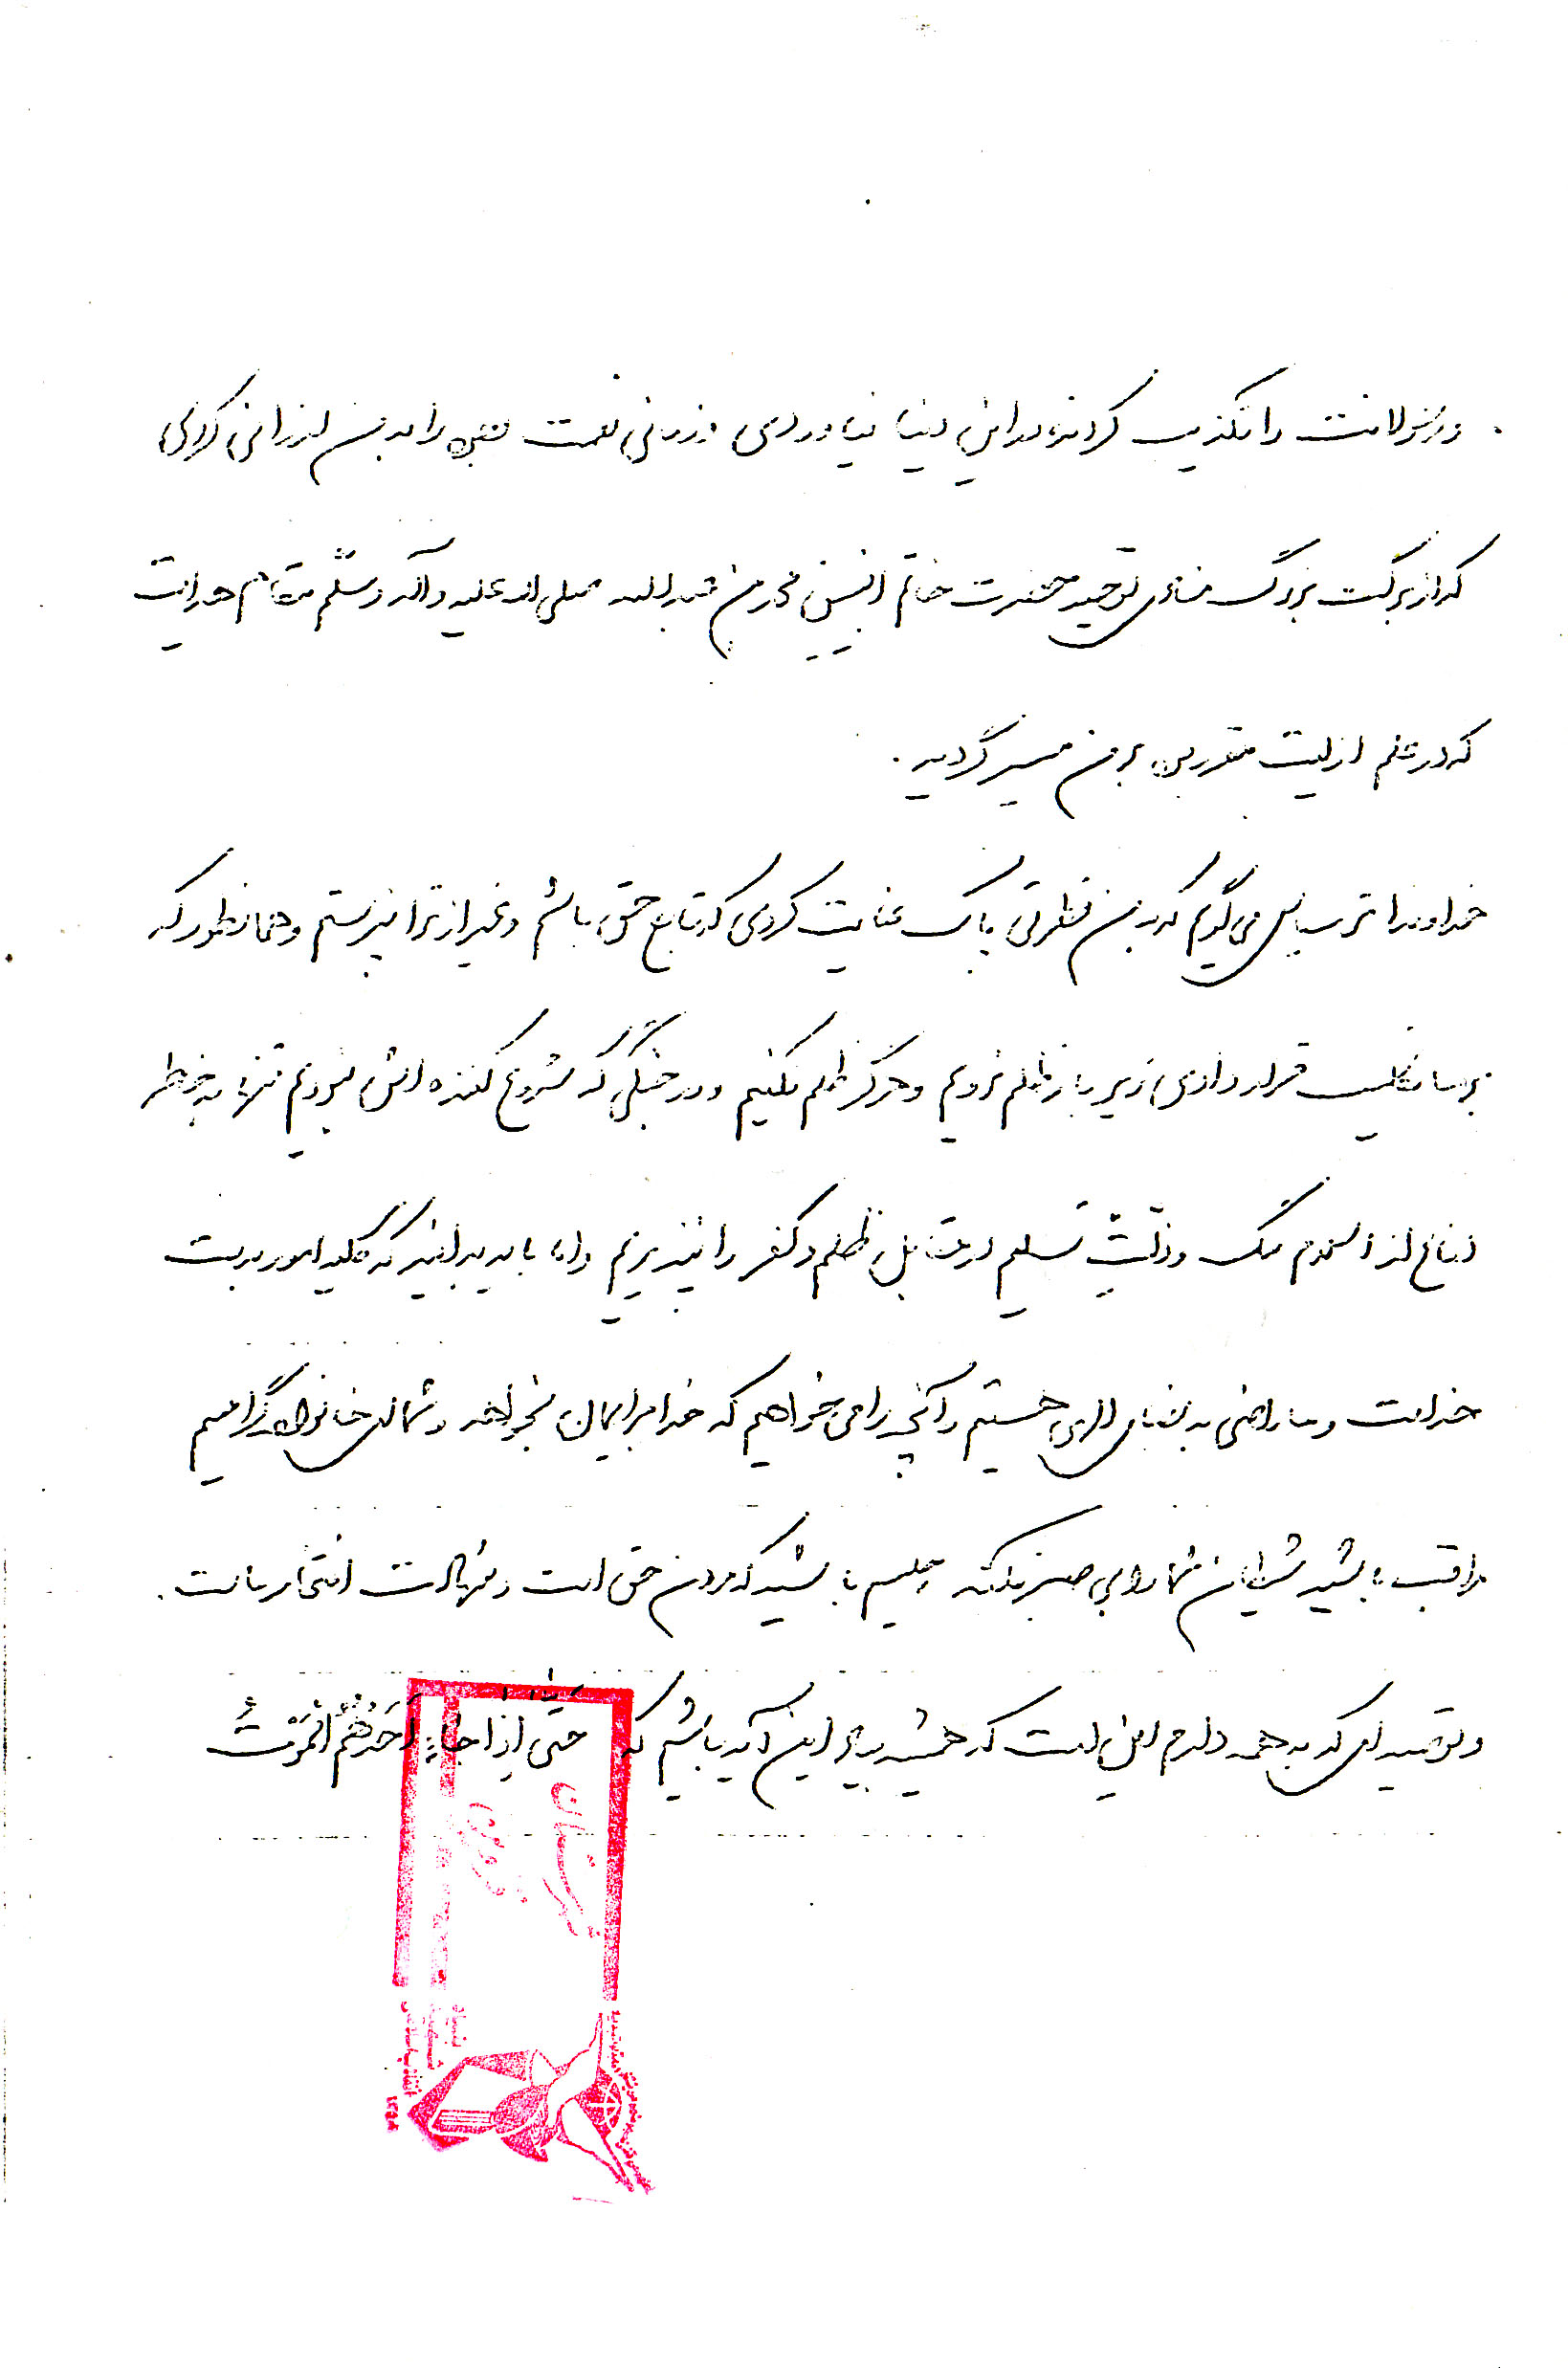 و رسولانت را تکذیب کردند، در این دنیا نیاوردی و زمانی نعمت وجود را به من ارزانی کردی
که از برکت بزرگ منادی توحید حضرت خاتم النبیین محمد بن عبدالله صلی الله علیه وآله وسلّم مقام هدایت
که در علم ازلیت مقرر بود، بر من میسر گردید.
خداوندا تو را سپاس می گویم که به من فطرتی پاک عنایت کردی که تابع حق باشم و غیر از ترا نپرستم و همانطور که
بر ما تکلیف قرار دادی زیر بار ظلم نرویم و هرگز ظلم نکنیم و در جنگی که شروع کننده اش نبودیم تنها به خاطر
دفاع از اسلام ننگ و ذلّتِ تسلیم در مقابل ظلم و کفر را نپذیریم و اما باید بدانید که کلید امور بدست
خداست و ما راضی به رضای الهی هستیم و آنچه را می خواهیم که خدا برایمان بخواهد و شما ای خانواده گرامیم
مراقب باشید شیطان شما را بی صبر نکند و حلیم باشید که مردن حق است و شهادت افتخار ماست.
و توصیه ای که به همه دارم این است که همیشه به یاد این آیه باشیم که حَتّی اِذا جاءَ اَحَدَهُمُ الْمَوْتُ
شهرستان